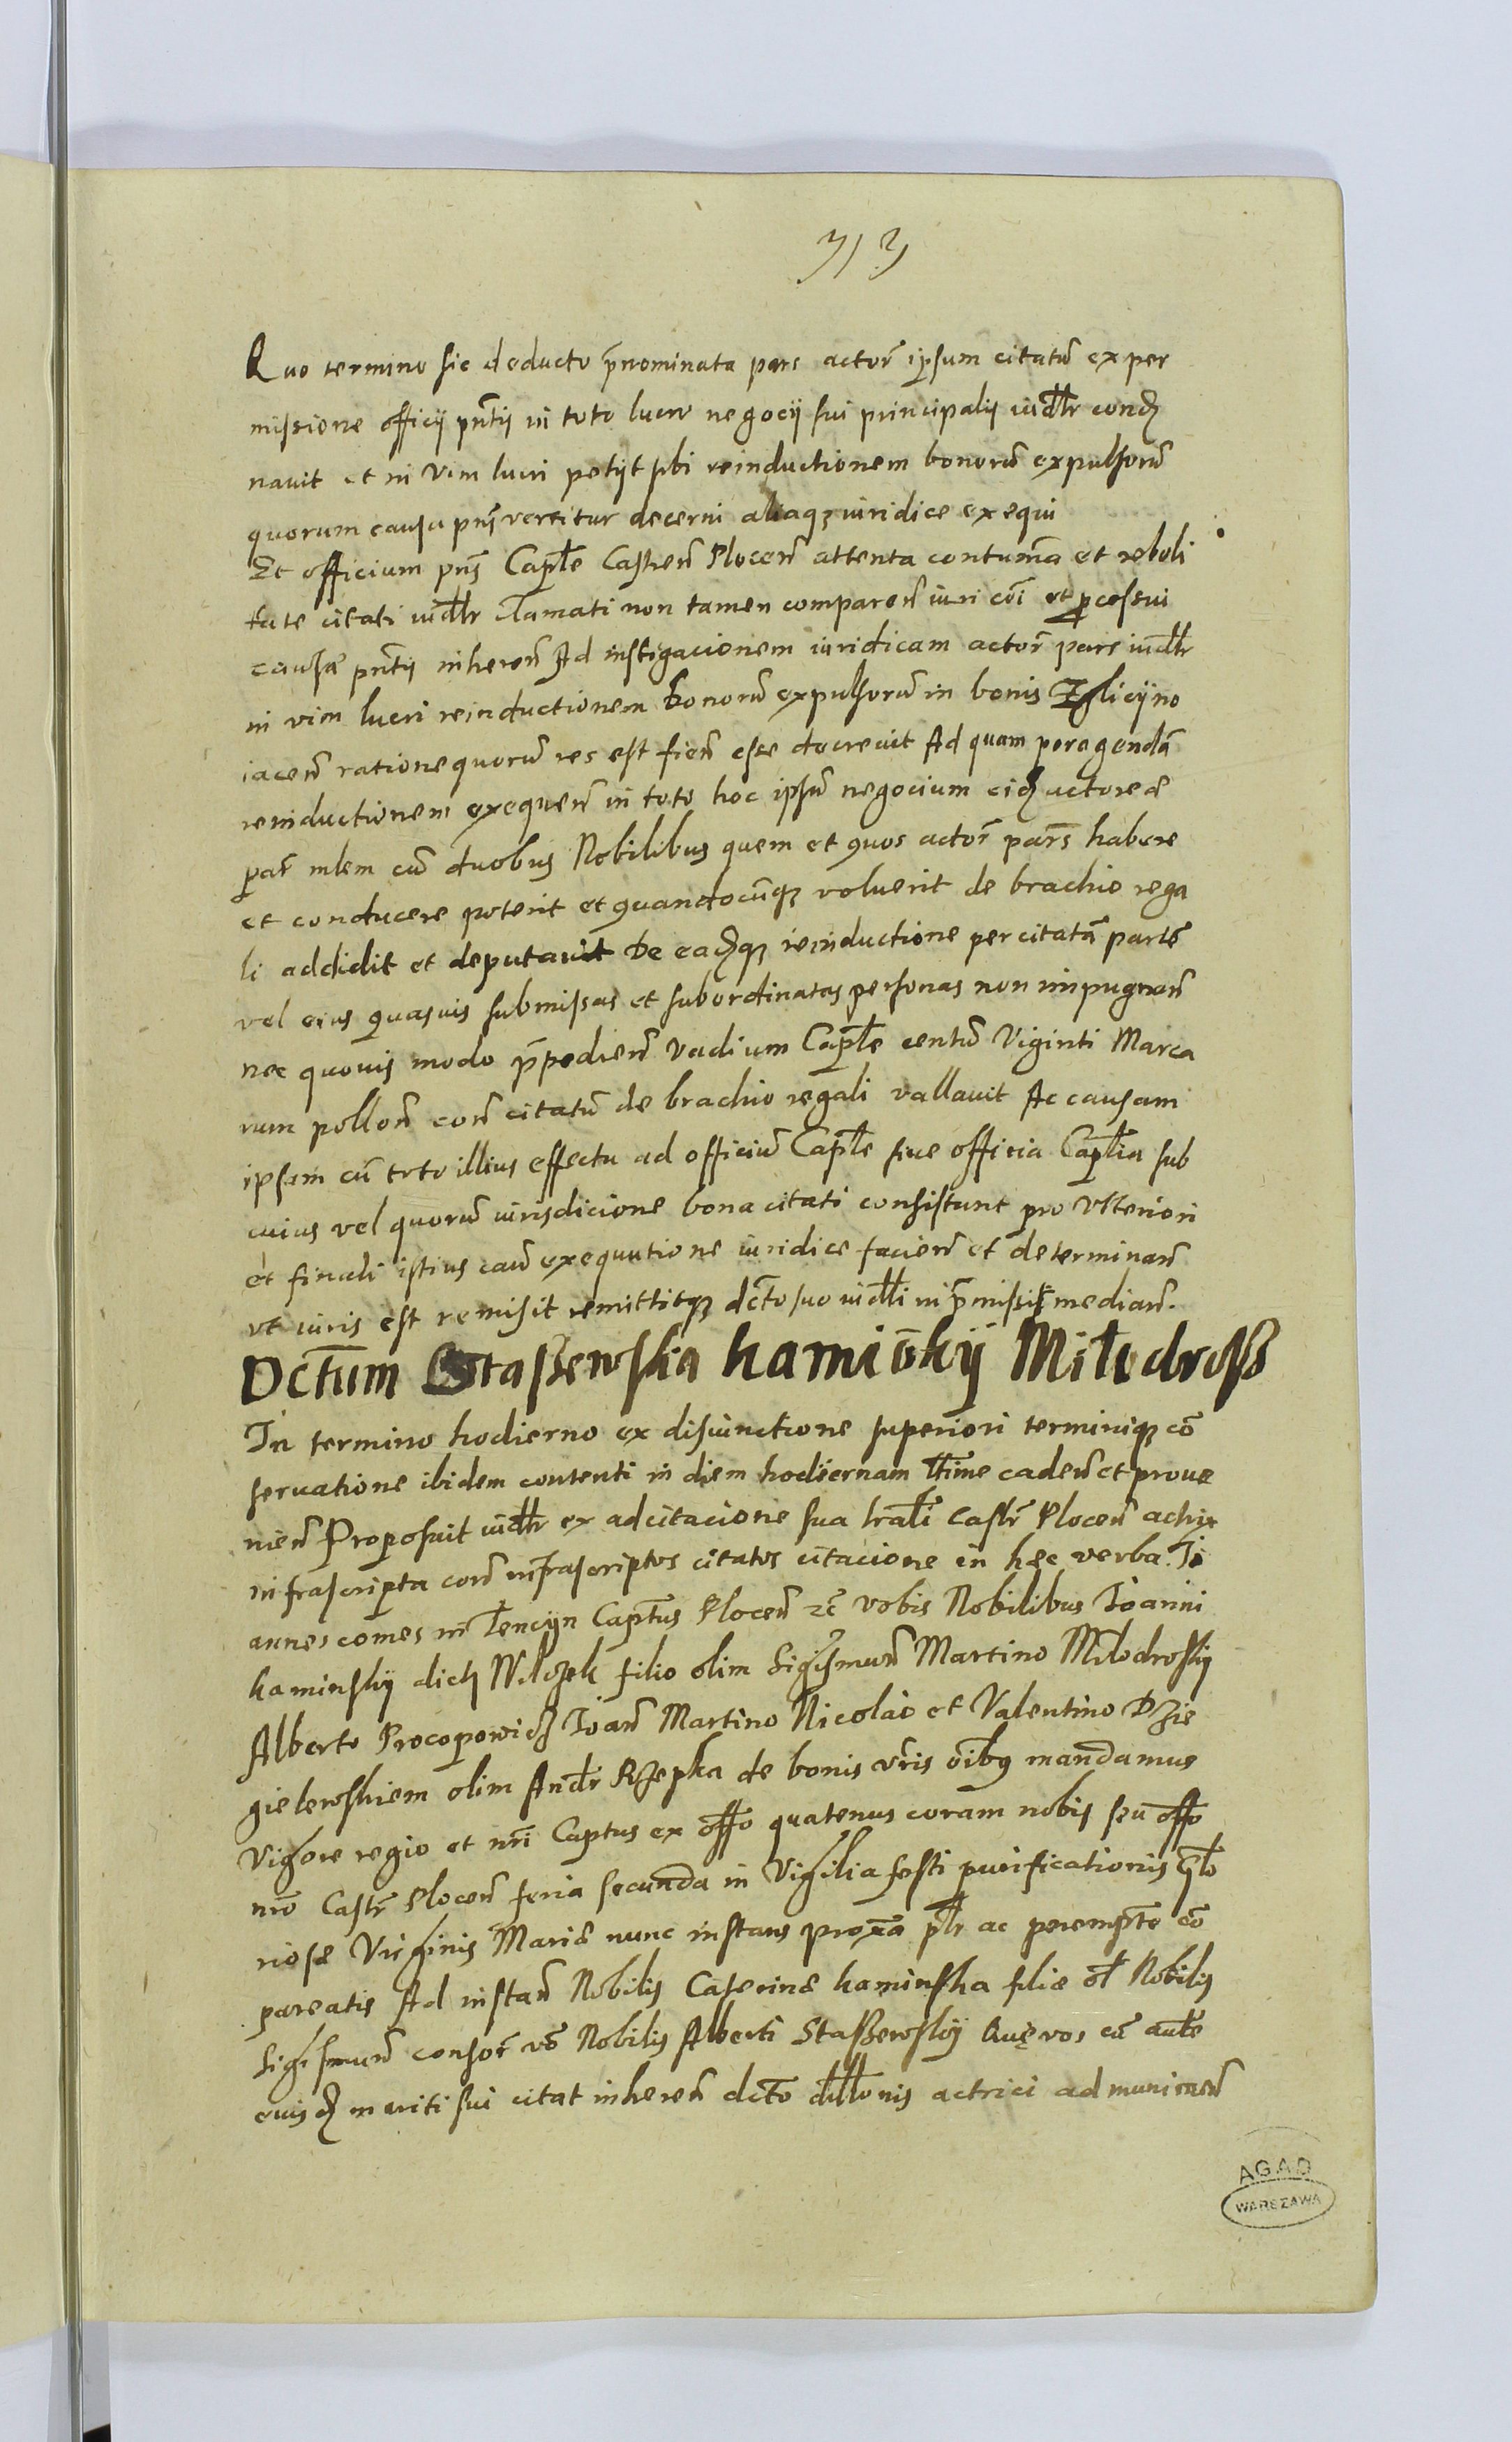 313
Quo termino sic deducto p̄nominata pars actor̄ ipsum citatū ex per
missione officij pn̄tij in toto lucro negocij sui principalij iud̄lr cond̄
nauit et in vim lucri petijt sibi reinductionem bonorū expulsorū
quorum causa pn̄s vertitur decerni aliaqȝ iuridice exequi
Et officium pn̄s Cap̄tle Castren̄ Plocen̄ attenta contum̄a et rebeli
tate citati iud̄lr clamati non tamen comparen̄ iuri cōi et p̱cessui
causæ pn̄tij inheren̄ Ad instigacionem iuridicam actor̄ pars iud̄lr
in vim lucri reinductionem bonorū expulsorū in bonis Zglicijno
iacen̄ rationequorū res est fien̄ esse decreuit Ad quam peragendā
reinductionem exequen̄ in toto hoc ipsū negocium eid̄ actoreæ
par̄ mlem cū duobus Nobilibus quem et quos actor̄ pars̄ habere
et conducere poterit et quandocūqȝ voluerit de brachio rega
li addidit et deputauit De ead̄qȝ reinductione per citatā partē
vel eius quasuis submissas et subordinatas personas non impugnan̄
nec quouis modo p̄pedien̄ vadium Cap̄tle centū Viginti Marca
rum pollon̄ con̄ citatū de brachio regali vallauit Ac causam
ipsam cū toto illius effectu ad officiū Cap̄tle siue officia Cap̄tlia sub
cuius vel quorū iurisdicione bona citati consistunt pro vlteriori
et finali istius cau̅ exequutione iuridice facien̄ et determinan̄
vt iuris est remisit remittitqȝ dc̄to suo iud̄lli in p̄missis median̄.
Dct̄um Staßewska kamiōkij Miłodroß
In termino hodierno ex disiunctione superiori terminiqȝ cō
seruatione ibidem contenti in diem hodiernam lt̄ime caden̄ et proue
nien̄ Proposuit iud̄lr ex adcitacione sua lr̄ali castr̄ Plocen̄ actrix
infrascripta con̄ infrascriptos citatos citacione in hęc verba. Jo
annes comes in Tencijn Capt̄us Plocen̄ zc̄ vobis Nobilibus Joanni
kaminskij dict̄ Wilczek filio olim Sigismun̄ Martino Milodroskij
Alberto Procopowicz Joan̄ Martino Nicolao et Valentino Dzie
gielewskiem olim Andr̄ Rzepka de bonis vr̄is oībȝ mandamus
Vigore regio et nr̄i Captus ex off̄o quatenus coram nobis seu off̄o
nr̄o Castr̄ Plocen̄ feria secunda in Vigilia festi purificationis glō
riosæ Virginis Mariæ nunc instans prox̄a pt̄lr ac perempt̄e cō
pareatis Ad instan̄ Nobilis Caterinæ kaminska filiæ ol̄ Nobilis
Sigismun̄ consor̄ vō Nobilis Alberti Staßewskij Quę vos cū autē
euisd̄ mariti sui citat inheren̄ dct̄o dill̄onis actrici ad muniмen̄
AGAD
WARSZAWA